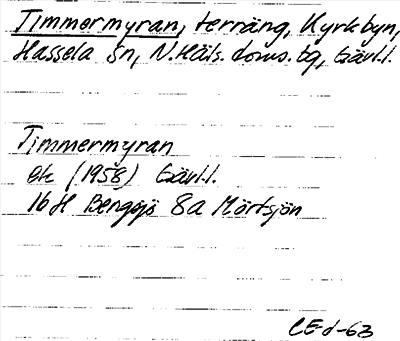 Timmermyran, terräng, Kyrkbyn,
Hassela sn, N. Häls. doms. tg, Gävl.l.
Timmermyran
ek (1958) Gävl.l.
16H Bergsjö 8a Mörtsjön
CE-d-63